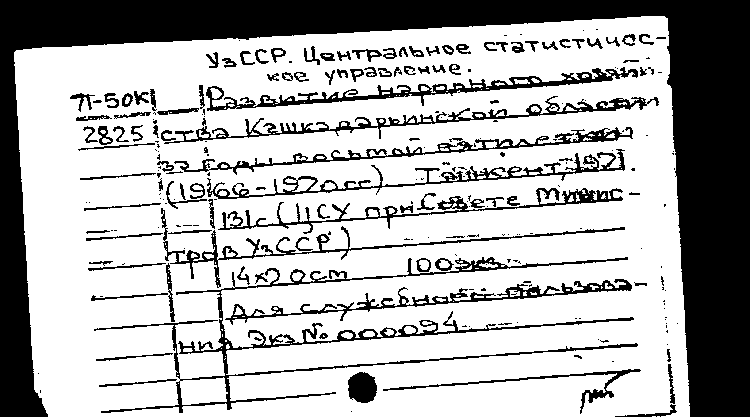 УзССР. Центральное статистичес-
кое управление.
П-50К Развитие народного хозяй-
2825 ства Кашкадарьинской области
за годы восьмой пятилетки
(1966-1970гг) Ташкент, 1971.
131с (ЦСУ при Совете Минис-
тров УзССР)
14х20см 100экз.
Для служебного пользова-
ния. Экз № 000094